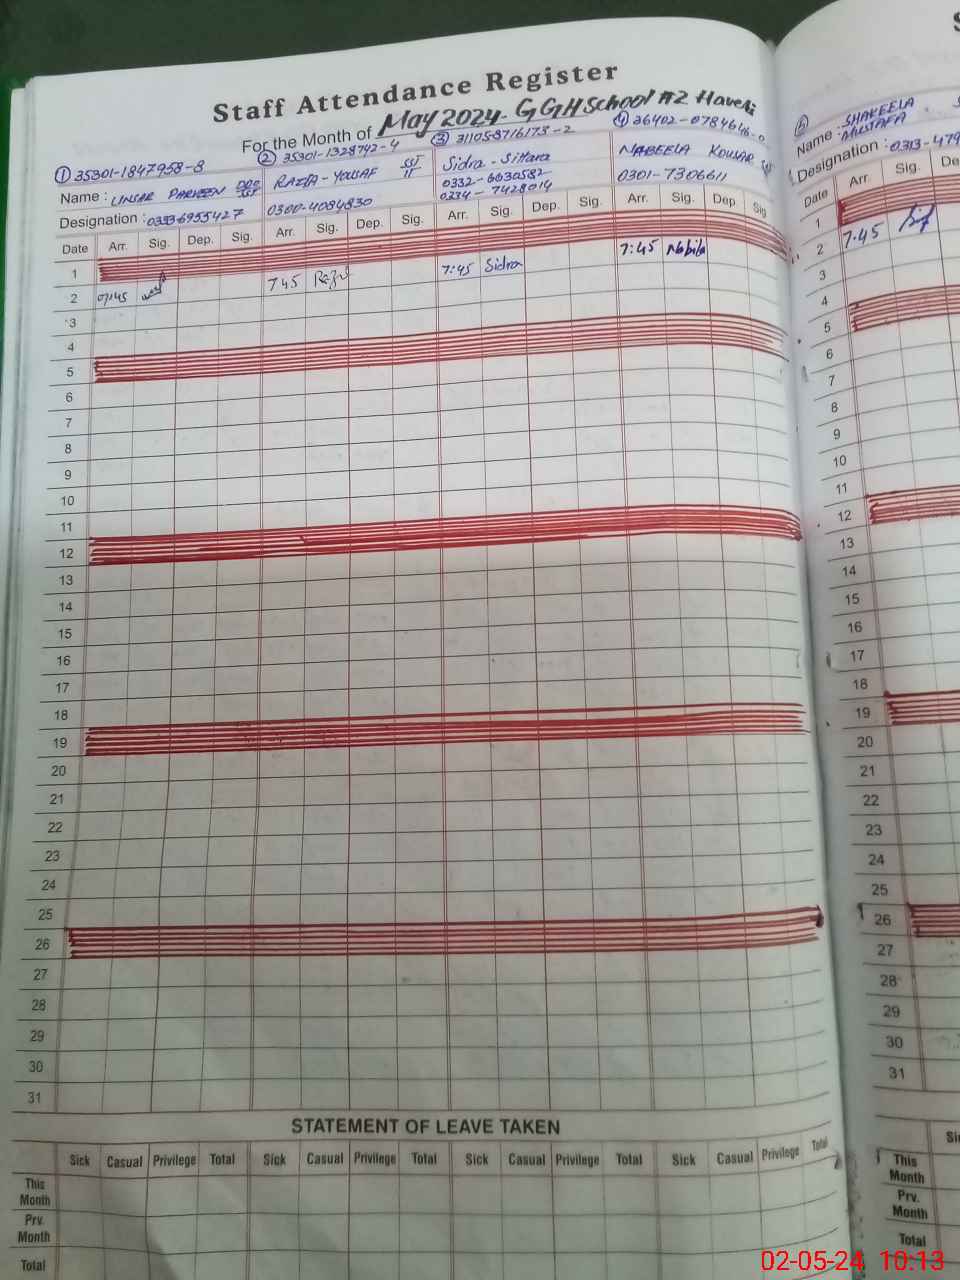 Staff Attendance Register
For the Month of May 2024- GGHSchool #2 Haveli
① 35301-1847958-8 ② 35301-1328742-4 ③ 311058716173-2 ④ 36402-0784646-0
Name : PARVEEN RAZIA - YOUSAF SST IT Sidra - Sittara NABEELA KOUSAR
0332-6630582
Designation : 03336955427 0300-4084830 0234-7428014 0301-7306611
Date Arr. Sig. Dep. Sig. Arr. Sig. Dep. Sig. Arr. Sig. Dep. Sig. Arr. Sig. Dep. Sig
1
2 07:45 7 45 7:45 Sidra 7:45 Nabila
3
4
5
6
7
8
9
10
11
12
13
14
15
16
17
18
19
20
21
22
23
24
25
26
27
28
29
30
31
STATEMENT OF LEAVE TAKEN
Sick Casual Privilege Total Sick Casual Privilege Total Sick Casual Privilege Total Sick Casual Privilege Total
This Month
Prv. Month
Total
⑤
Name : SHAKEELA
MUSTAFA
Designation : 0313-479
Date Arr. Sig. De
1
2 7.45
3
4
5
6
7
8
9
10
11
12
13
14
15
16
17
18
19
20
21
22
23
24
25
26
27
28
29
30
31
Si
This Month
Prv. Month
Total
02-05-24 10:13